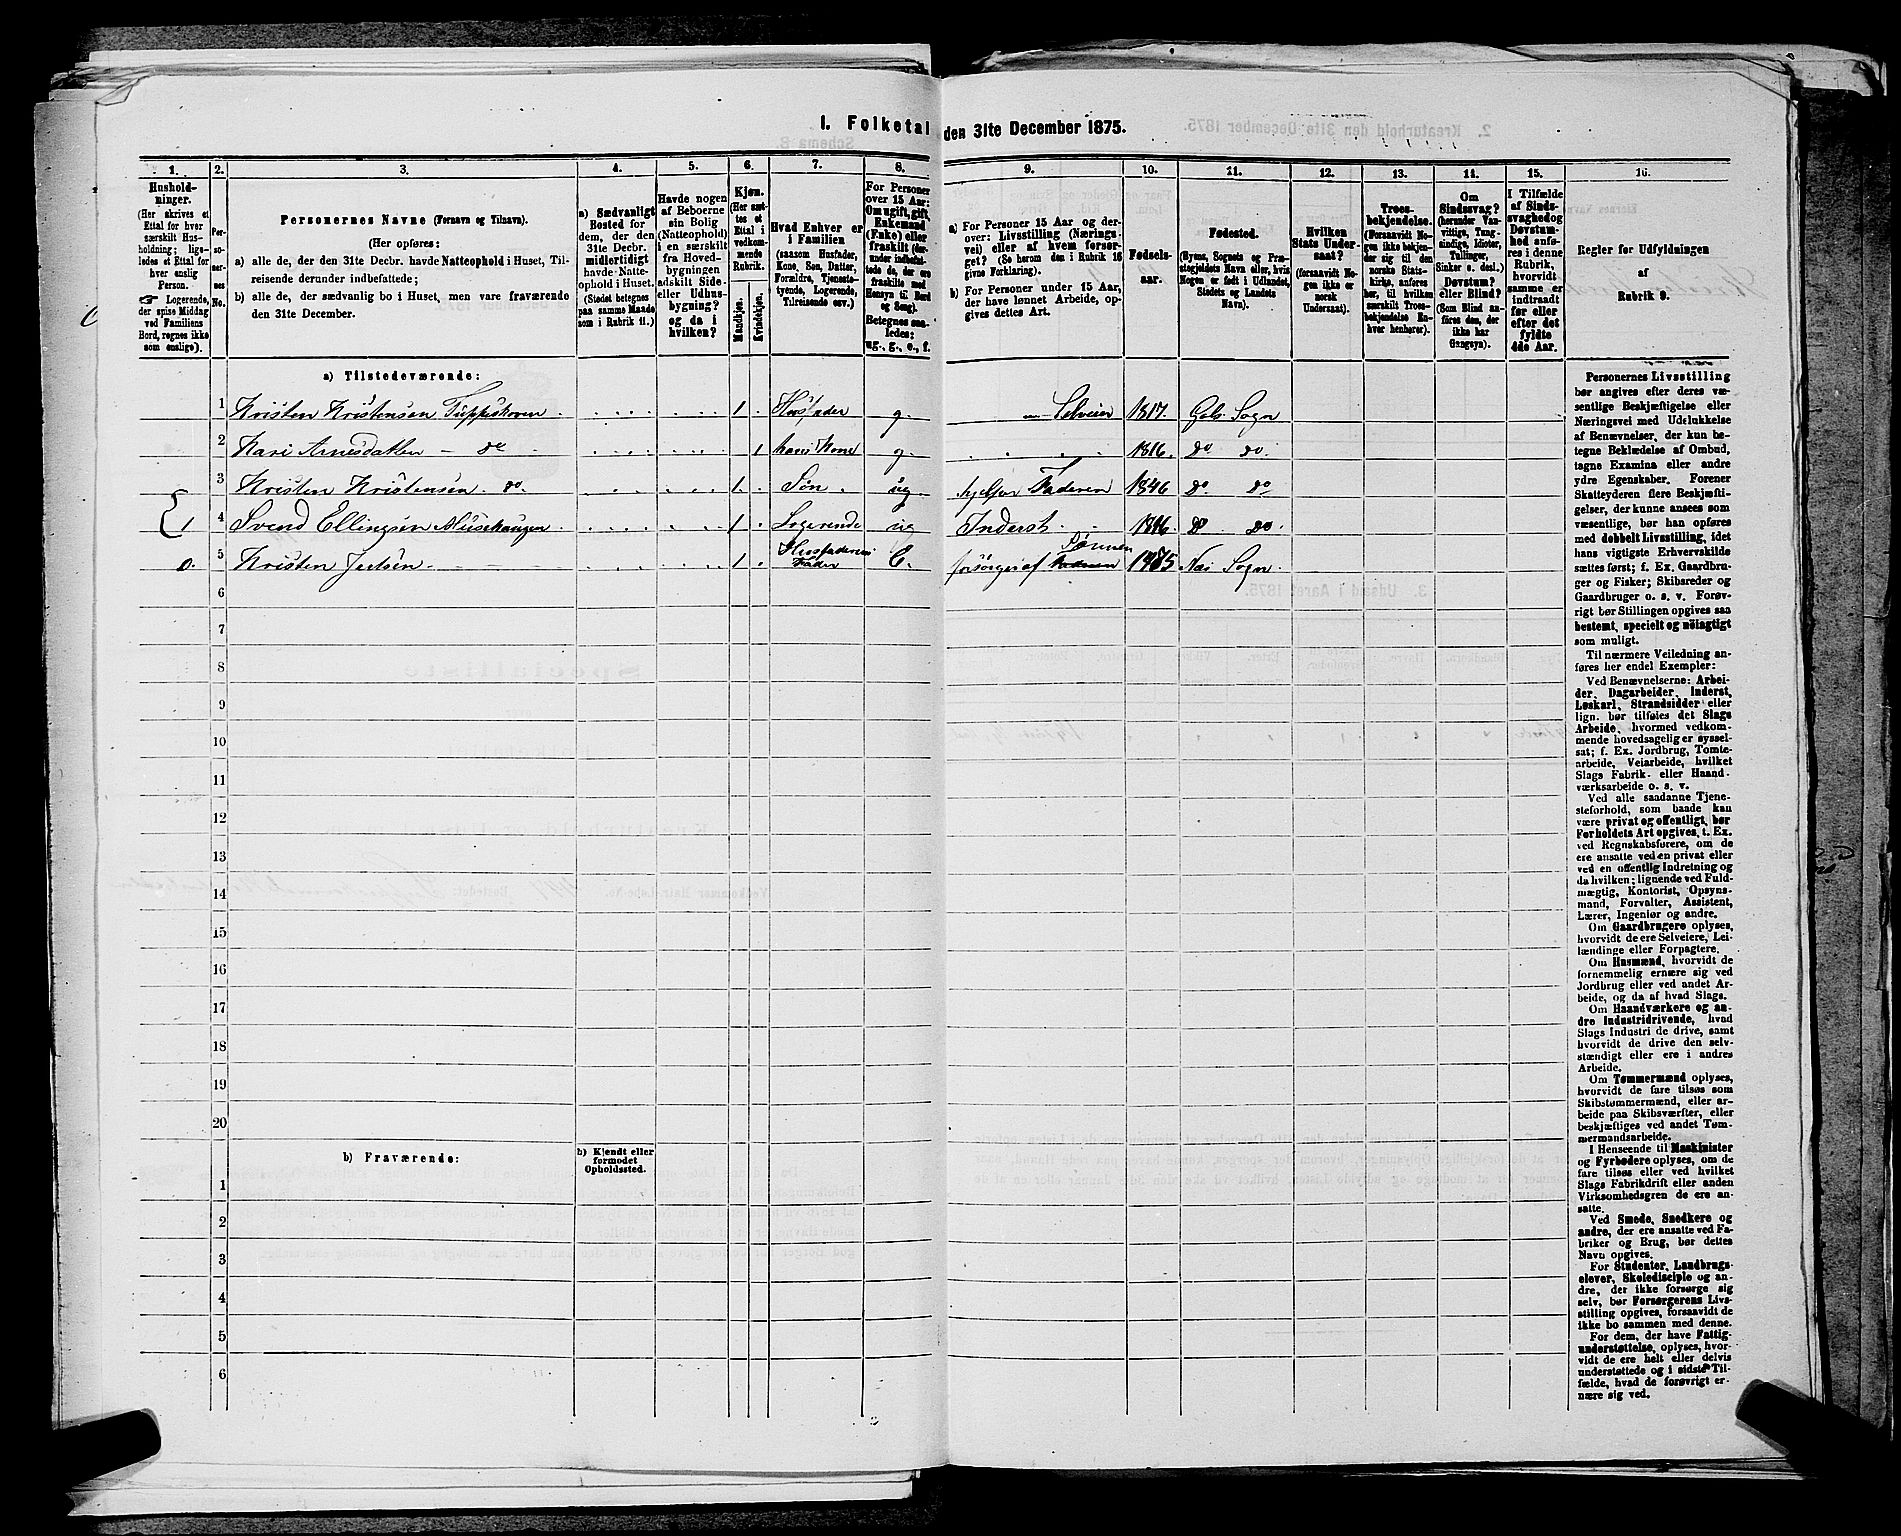 I. Folketal den 31te December 1875.
1. 2. 3. 4. 5. 6. 7. 8. 9. 10. 11. 12. 13. 14. 15. 16.
Hushold-
ninger.
(Her skrives et
Ettal for hver
særskilt Hus-
holdning; lige-
ledes et Ettal for
hver enslig
Person.
☞ Logerende,
der spise Middag
ved Familiens
Bord, regnes ikke
som enslige).
Per-
so-
ner-
nes
No.
Personernes Navne (Fornavn og Tilnavn).
(Her opføres:
a) alle de, der den 31te Decbr. havde Natteophold i Huset, Til-
reisende derunder indbefattede;
b) alle de, der sædvanlig bo i Huset, men vare fraværende
den 31te December.
a) Sædvanligt
Bosted for
dem, der den
31te Decbr.
midlertidigt
havde Natte-
ophold i Huset.
(Stedet betegnes
paa samme Maade
som i Rubrik 11.)
Havde nogen
af Beboerne
sin Bolig
(Natteophold)
i en særskilt
fra Hoved-
bygningen
adskilt Side-
eller Udhus-
bygning?
og da i
hvilken?
Kjøn.
(Her sæt-
tes et
Ettal i
vedkom-
mende
Rubrik.
Mandkjøn.
Kvindekjøn.
Hvad Enhver er
i Familien
(saasom Husfader,
Kone, Søn, Datter,
Forældre, Tjeneste-
tyende, Logerende
Tilreisende osv.)
For Personer
over 15 Aar:
Om ugift, gift,
Enkemand
(Enke) eller
fraskilt (der-
under indbefat-
tede de, der ere
fraskilte med
Hensyn til Bord
og Seng).
Betegnes saa-
ledes:
ug., g., e., f.
a) For Personer 15 Aar og der-
over: Livsstilling (Nærings-
vei) eller af hvem forsør-
get? (Se herom den i Rubrik 16
givne Forklaring).
b) For Personer under 15 Aar,
der have lønnet Arbeide, op-
gives dettes Art.
Fødsels-
aar.
Fødested.
(Byens, Sognets og Præ-
stegjeldets Navn eller, hvis
Nogen er født i Udlandet,
Stedets og Landets
Navn).
Hvilken
Stats Under-
saat?
(forsaavidt No-
gen ikke er
norsk
Undersaat).
Troes-
bekjendelse.
(Forsaavidt No-
gen ikke bekjen-
der sig til den
norske Stats-
kirke, anføres
her, til hvilken
særskilt Troes-
bekjendelse En-
hver henhører).
Om
Sindssvag?
(herunder Van-
vittige, Tung-
sindige, Idioter,
Tullinger,
Sinker o. desl.)
Døvstum?
eller Blind?
(Som Blind an-
føres den, der
ikke har
Gangsyn).
I Tilfælde
af Sinds-
svaghed og
Døvstum-
hed anfø-
res i denne
Rubrik,
hvorvidt
samme er
indtraadt
før eller
efter det
fyldte
4de Aar.
Regler for Udfyldningen
af
Rubrik 9.
a) Tilstedeværende:
1 Kristen Kristensen Tuppeskoven 1 Husfader g. Selveier 1817 Gols Sogn
2 Kari Arnesdatter do 1 hans Kone g. 1816 do do
3 Kristen Kristensen do. 1 Søn ug. hjelper Faderen 1846 do do
1 4 Svend Ellingsen 1 Logerende ug Inderst 1816 do do
0. 5 Kristen 1 Husfaderens Fader E. forsørges af Sønnen Nes Sogn
6
7
8
9
10
11
12
13
14
15
16
17
18
19
20
b) Fraværende:
b) Kjendt eller
formodet
Opholdssted.
1
2
3
4
5
6
Personernes Livsstilling
bør angives efter deres væ-
sentlige Beskjæftigelse eller
Næringsvei med Udelukkelse
af Benævnelser, der kun be-
tegne Beklædelse af Ombud,
tagne Examina eller andre
ydre Egenskaber. Forener
Skatteyderen flere Beskjæfti-
gelser, der kunne ansees som
væsentlige, bør han opføres
med dobbelt Livsstilling, idet
hans vigtigste Erhvervskilde
sættes først; f. Ex. Gaardbru-
ger og Fisker; Skibsreder og
Gaardbruger o. s. v. Forøv-
rigt bør Stillingen opgives saa
bestemt, specielt og nøiagtigt
som muligt.
Til nærmere Veiledning an-
føres her endel Exempler:
Ved Benævnelserne: Arbei-
der, Dagarbeider, Inderst,
Løskarl, Strandsidder eller
lign. bør tilføies det Slags
Arbeide, hvormed vedkom-
mende hovedsagelig er syssel-
sat; f. Ex. Jordbrug, Tomte-
arbeide, Veiarbeide, hvilket
Slags Fabrik- eller Haand-
værksarbeide o. s. v.
Ved alle saadanne Tjene-
steforhold, som baade kan
være privat og offentligt, bør
Forholdets Art opgives, t. Ex.
ved Regnskabsførere, om de
ere ansatte ved en privat eller
ved en offentlig Indretning og
da hvilken; lignende ved Fuld-
mægtig, Kontorist, Opsyns-
mand, Forvalter, Assistent,
Lærer, Ingeniør og andre.
Om Gaardbrugere oplyses,
hvorvidt de ere Selveiere, Lei-
lændinge eller Forpagtere.
Om Husmænd, hvorvidt de
fornemmelig ernære sig ved
Jordbrug eller ved andet Ar-
beide, og da af hvad Slags.
Om Haandværkere og an-
dre Industridrivende, hvad
Slags Industri de drive, samt
hvorvidt de drive den selv-
stændigt eller ere i andres
Arbeide.
Om Tømmermænd oplyses,
hvorvidt de fare tilsøs som
Skibstømmermænd, eller ar-
beide paa Skibsværfter, eller
beskjæftiges ved andet Tøm-
mermandsarbeide.
I Henseende til Maskinister
og Fyrbødere oplyses, om de
fare tilsøs eller ved hvilket
Slags Fabrikdrift eller anden
Virksomhedsgren de ere an-
satte.
Ved Smede, Snedkere og
andre, der ere ansatte ved Fa-
briker og Brug, bør dettes
Navn opgives.
For Studenter, Landbrugs-
elever, Skoledisciple og an-
dre, der ikke forsørge sig
selv, bør Forsørgerens Livs-
stilling opgives, forsaavidt de
ikke bo sammen med denne.
For dem, der have Fattig-
understøttelse, oplyses, hvor-
vidt de ere helt eller delvis
understøttede og i sidste Til-
fælde, hvad de forøvrigt er-
nære sig ved.